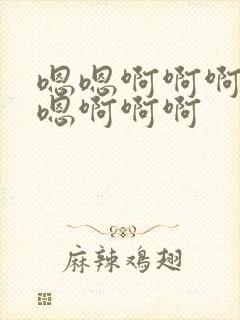 嗯嗯啊啊啊
嗯啊啊啊
麻辣鸡翅